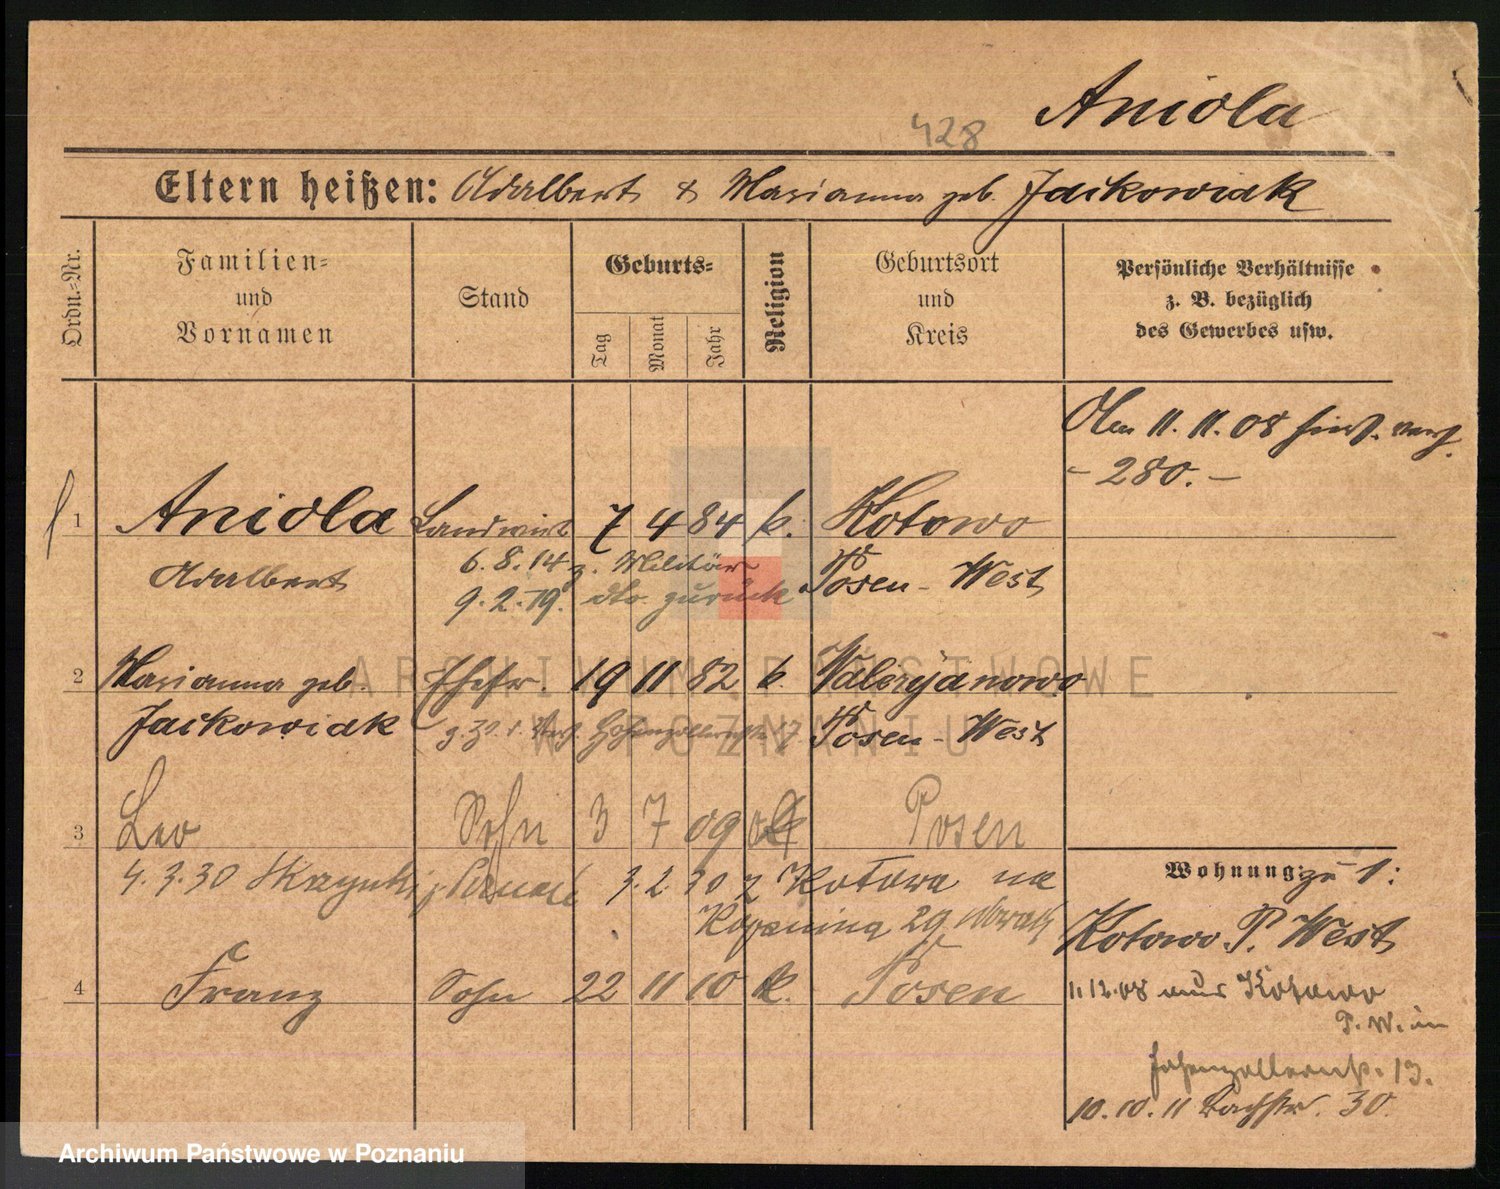 Aniola
428
Eltern heißen: Adalbert & Marianna geb. Jaskowiak
Ordn.=Nr.
Familien=
und
Vornamen
Stand
Geburts=
Tag
Monat
Jahr
Religion
Geburtsort
und
Kreis
Persönliche Verhältnisse
z. B. bezüglich
des Gewerbes usw.
11. 11. 08
- 280. -
1 Aniola Landwirt 7 4 84 k. Kotowo
Adalbert 6. 8. 14 z. Militär Posen - West
9. 2. 19. dto. zurück
2 Marianna geb. Ehefr. 19 11 82 k. Walerjanowo
Jaskowiak Posen - West
3 Leo Sohn 3 7 09 k Posen
4. 3. 30 3. 2. 30 z Kotowa na
29
4 Franz Sohn 22 11 10 k. Posen
Wohnung zu 1:
Kotowo P. West
1. 12. 08 aus Kotowo
P. W. in
Hohenzollernstr. 13.
10. 10. 11 Bachstr. 30
ARCHIWUM PAŃSTWOWE
W POZNANIU
Archiwum Państwowe w Poznaniu